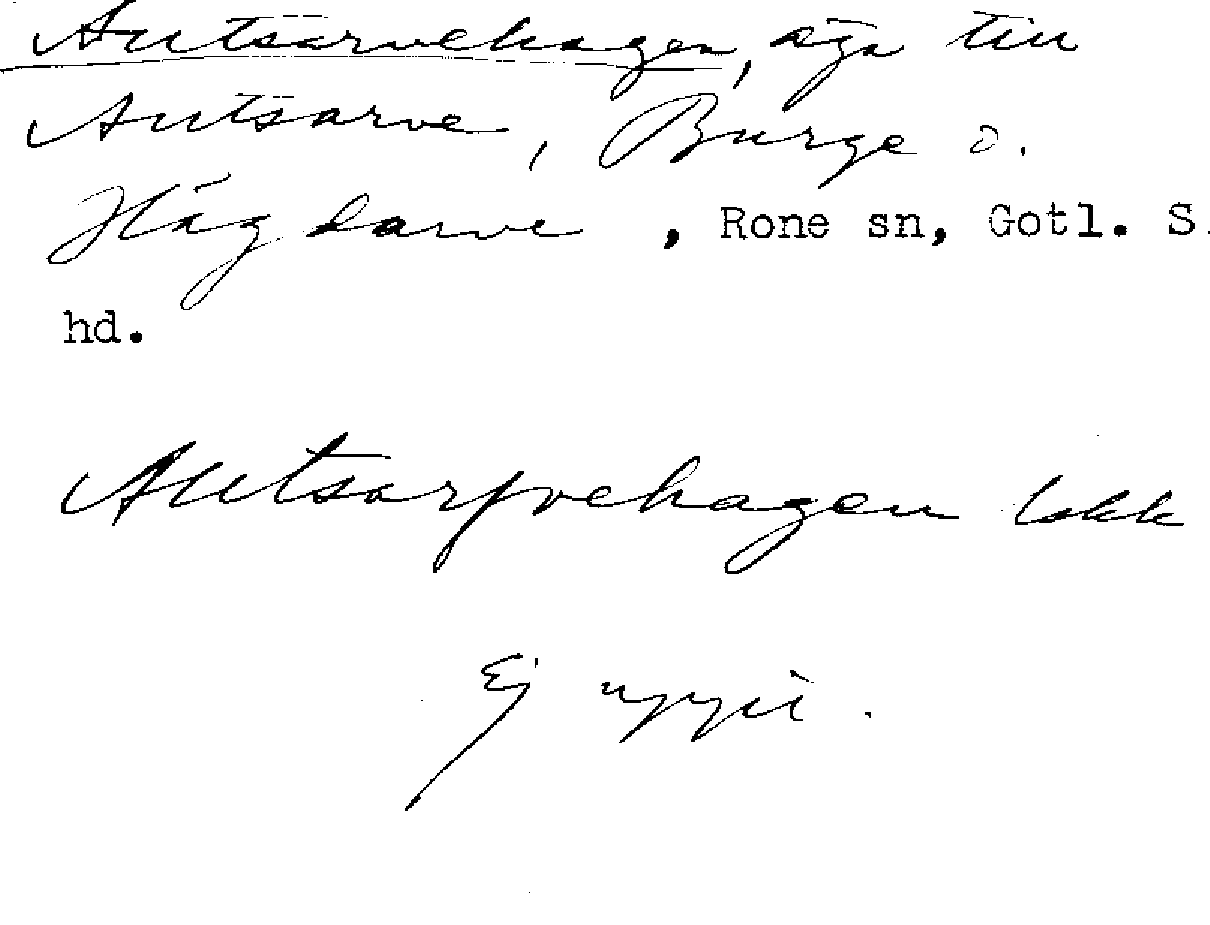 Autsarvehagen, äga till
Autsarve, Burge o.
Hägdarve, Rone sn, Gotl. S.
hd.
Autsarfvehagen Lskk
Ej uppit.